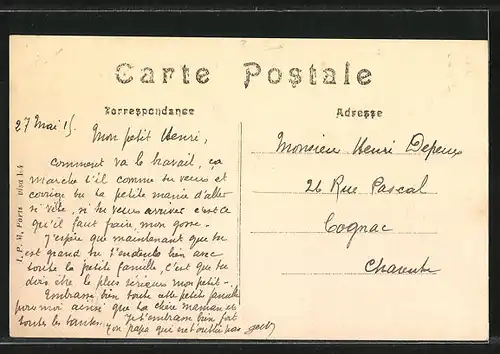 Carte Postale
Correspondance
Adresse
27 Mai 15.
Mon petit Henri,
comment va le travail, ça
marche t'il comme tu veux et
corrige toi ta petite manie d'aller
si vite, si tu veux arriver c'est ce
qu'il faut faire, mon gosse.
J'espère que maintenant que tu
es grand tu t'entends bien avec
toute la petite famille, c'est que tu
dois être le plus sérieux mon petit -
Embrasse bien toute cette petite famille
pour moi ainsi que ta chère maman et
toutes les tantes. Je t'embrasse bien fort
ton papa qui ne t'oublie pas
Monsieur Henri Depeux
26 Rue Pascal
Cognac
Charente
I. P. M. Paris